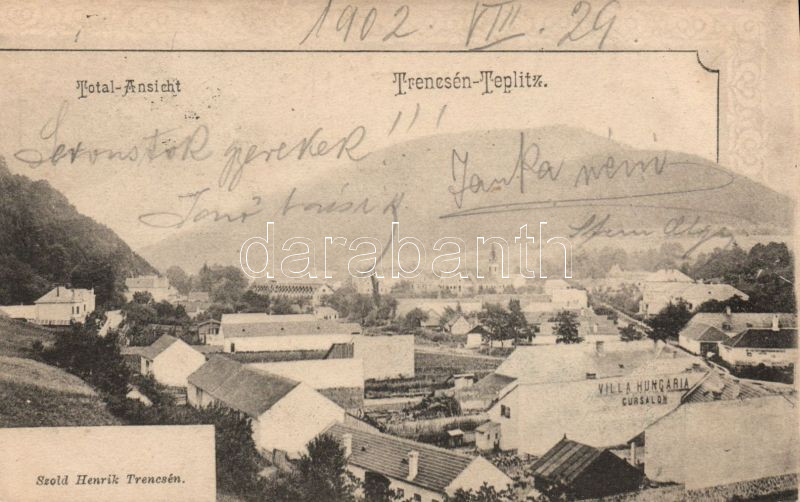 1902. VIII. 29
Total-Ansicht
Trencsén-Teplitz.
gyerekek!!!
Janka néni
darabanth
VILLA HUNGARIA
CURSALON
Szold Henrik Trencsén.